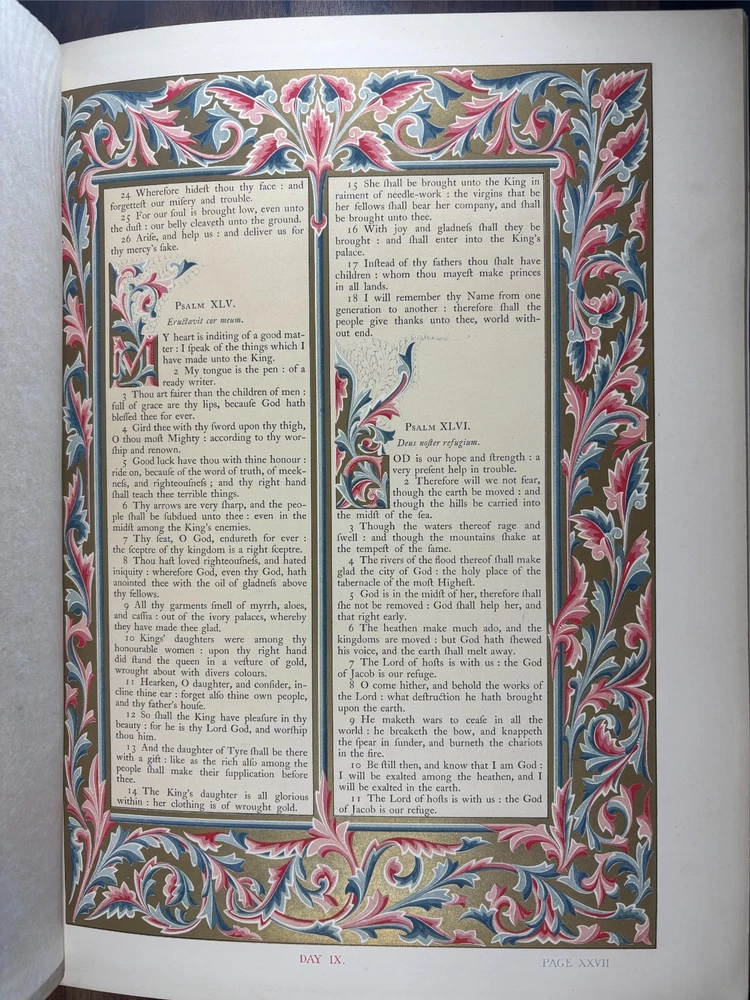 24 Wherefore hideſt thou thy face : and
forgetteſt our miſery and trouble.
25 For our ſoul is brought low, even unto
the duſt : our belly cleaveth unto the ground.
26 Ariſe, and help us : and deliver us for
thy mercy's ſake.
PSALM XLV.
Eructavit cor meum.
MY heart is inditing of a good mat-
ter : I ſpeak of the things which I
have made unto the King.
2 My tongue is the pen : of a
ready writer.
3 Thou art fairer than the children of men :
full of grace are thy lips, becauſe God hath
bleſſed thee for ever.
4 Gird thee with thy ſword upon thy thigh,
O thou moſt Mighty : according to thy wor-
ſhip and renown.
5 Good luck have thou with thine honour :
ride on, becauſe of the word of truth, of meek-
neſs, and righteouſneſs ; and thy right hand
ſhall teach thee terrible things.
6 Thy arrows are very ſharp, and the peo-
ple ſhall be ſubdued unto thee : even in the
midſt among the King's enemies.
7 Thy ſeat, O God, endureth for ever :
the ſceptre of thy kingdom is a right ſceptre.
8 Thou haſt loved righteouſneſs, and hated
iniquity : wherefore God, even thy God, hath
anointed thee with the oil of gladneſs above
thy fellows.
9 All thy garments ſmell of myrrh, aloes,
and caſſia : out of the ivory palaces, whereby
they have made thee glad.
10 Kings' daughters were among thy
honourable women : upon thy right hand
did ſtand the queen in a veſture of gold,
wrought about with divers colours.
11 Hearken, O daughter, and conſider, in-
cline thine ear : forget alſo thine own people,
and thy father's houſe.
12 So ſhall the King have pleaſure in thy
beauty : for he is thy Lord God, and worſhip
thou him.
13 And the daughter of Tyre ſhall be there
with a gift : like as the rich alſo among the
people ſhall make their ſupplication before
thee.
14 The King's daughter is all glorious
within : her clothing is of wrought gold.
15 She ſhall be brought unto the King in
raiment of needle-work : the virgins that be
her fellows ſhall bear her company, and ſhall
be brought unto thee.
16 With joy and gladneſs ſhall they be
brought : and ſhall enter into the King's
palace.
17 Inſtead of thy fathers thou ſhalt have
children : whom thou mayeſt make princes
in all lands.
18 I will remember thy Name from one
generation to another : therefore ſhall the
people give thanks unto thee, world with-
out end.
PSALM XLVI.
Deus noſter refugium.
GOD is our hope and ſtrength : a
very preſent help in trouble.
2 Therefore will we not fear,
though the earth be moved : and
though the hills be carried into
the midſt of the ſea.
3 Though the waters thereof rage and
ſwell : and though the mountains ſhake at
the tempeſt of the ſame.
4 The rivers of the flood thereof ſhall make
glad the city of God : the holy place of the
tabernacle of the moſt Higheſt.
5 God is in the midſt of her, therefore ſhall
ſhe not be removed : God ſhall help her, and
that right early.
6 The heathen make much ado, and the
kingdoms are moved : but God hath ſhewed
his voice, and the earth ſhall melt away.
7 The Lord of hoſts is with us : the God
of Jacob is our refuge.
8 O come hither, and behold the works of
the Lord : what deſtruction he hath brought
upon the earth.
9 He maketh wars to ceaſe in all the
world : he breaketh the bow, and knappeth
the ſpear in ſunder, and burneth the chariots
in the fire.
10 Be ſtill then, and know that I am God :
I will be exalted among the heathen, and I
will be exalted in the earth.
11 The Lord of hoſts is with us : the God
of Jacob is our refuge.
DAY IX.
PAGE XXVII